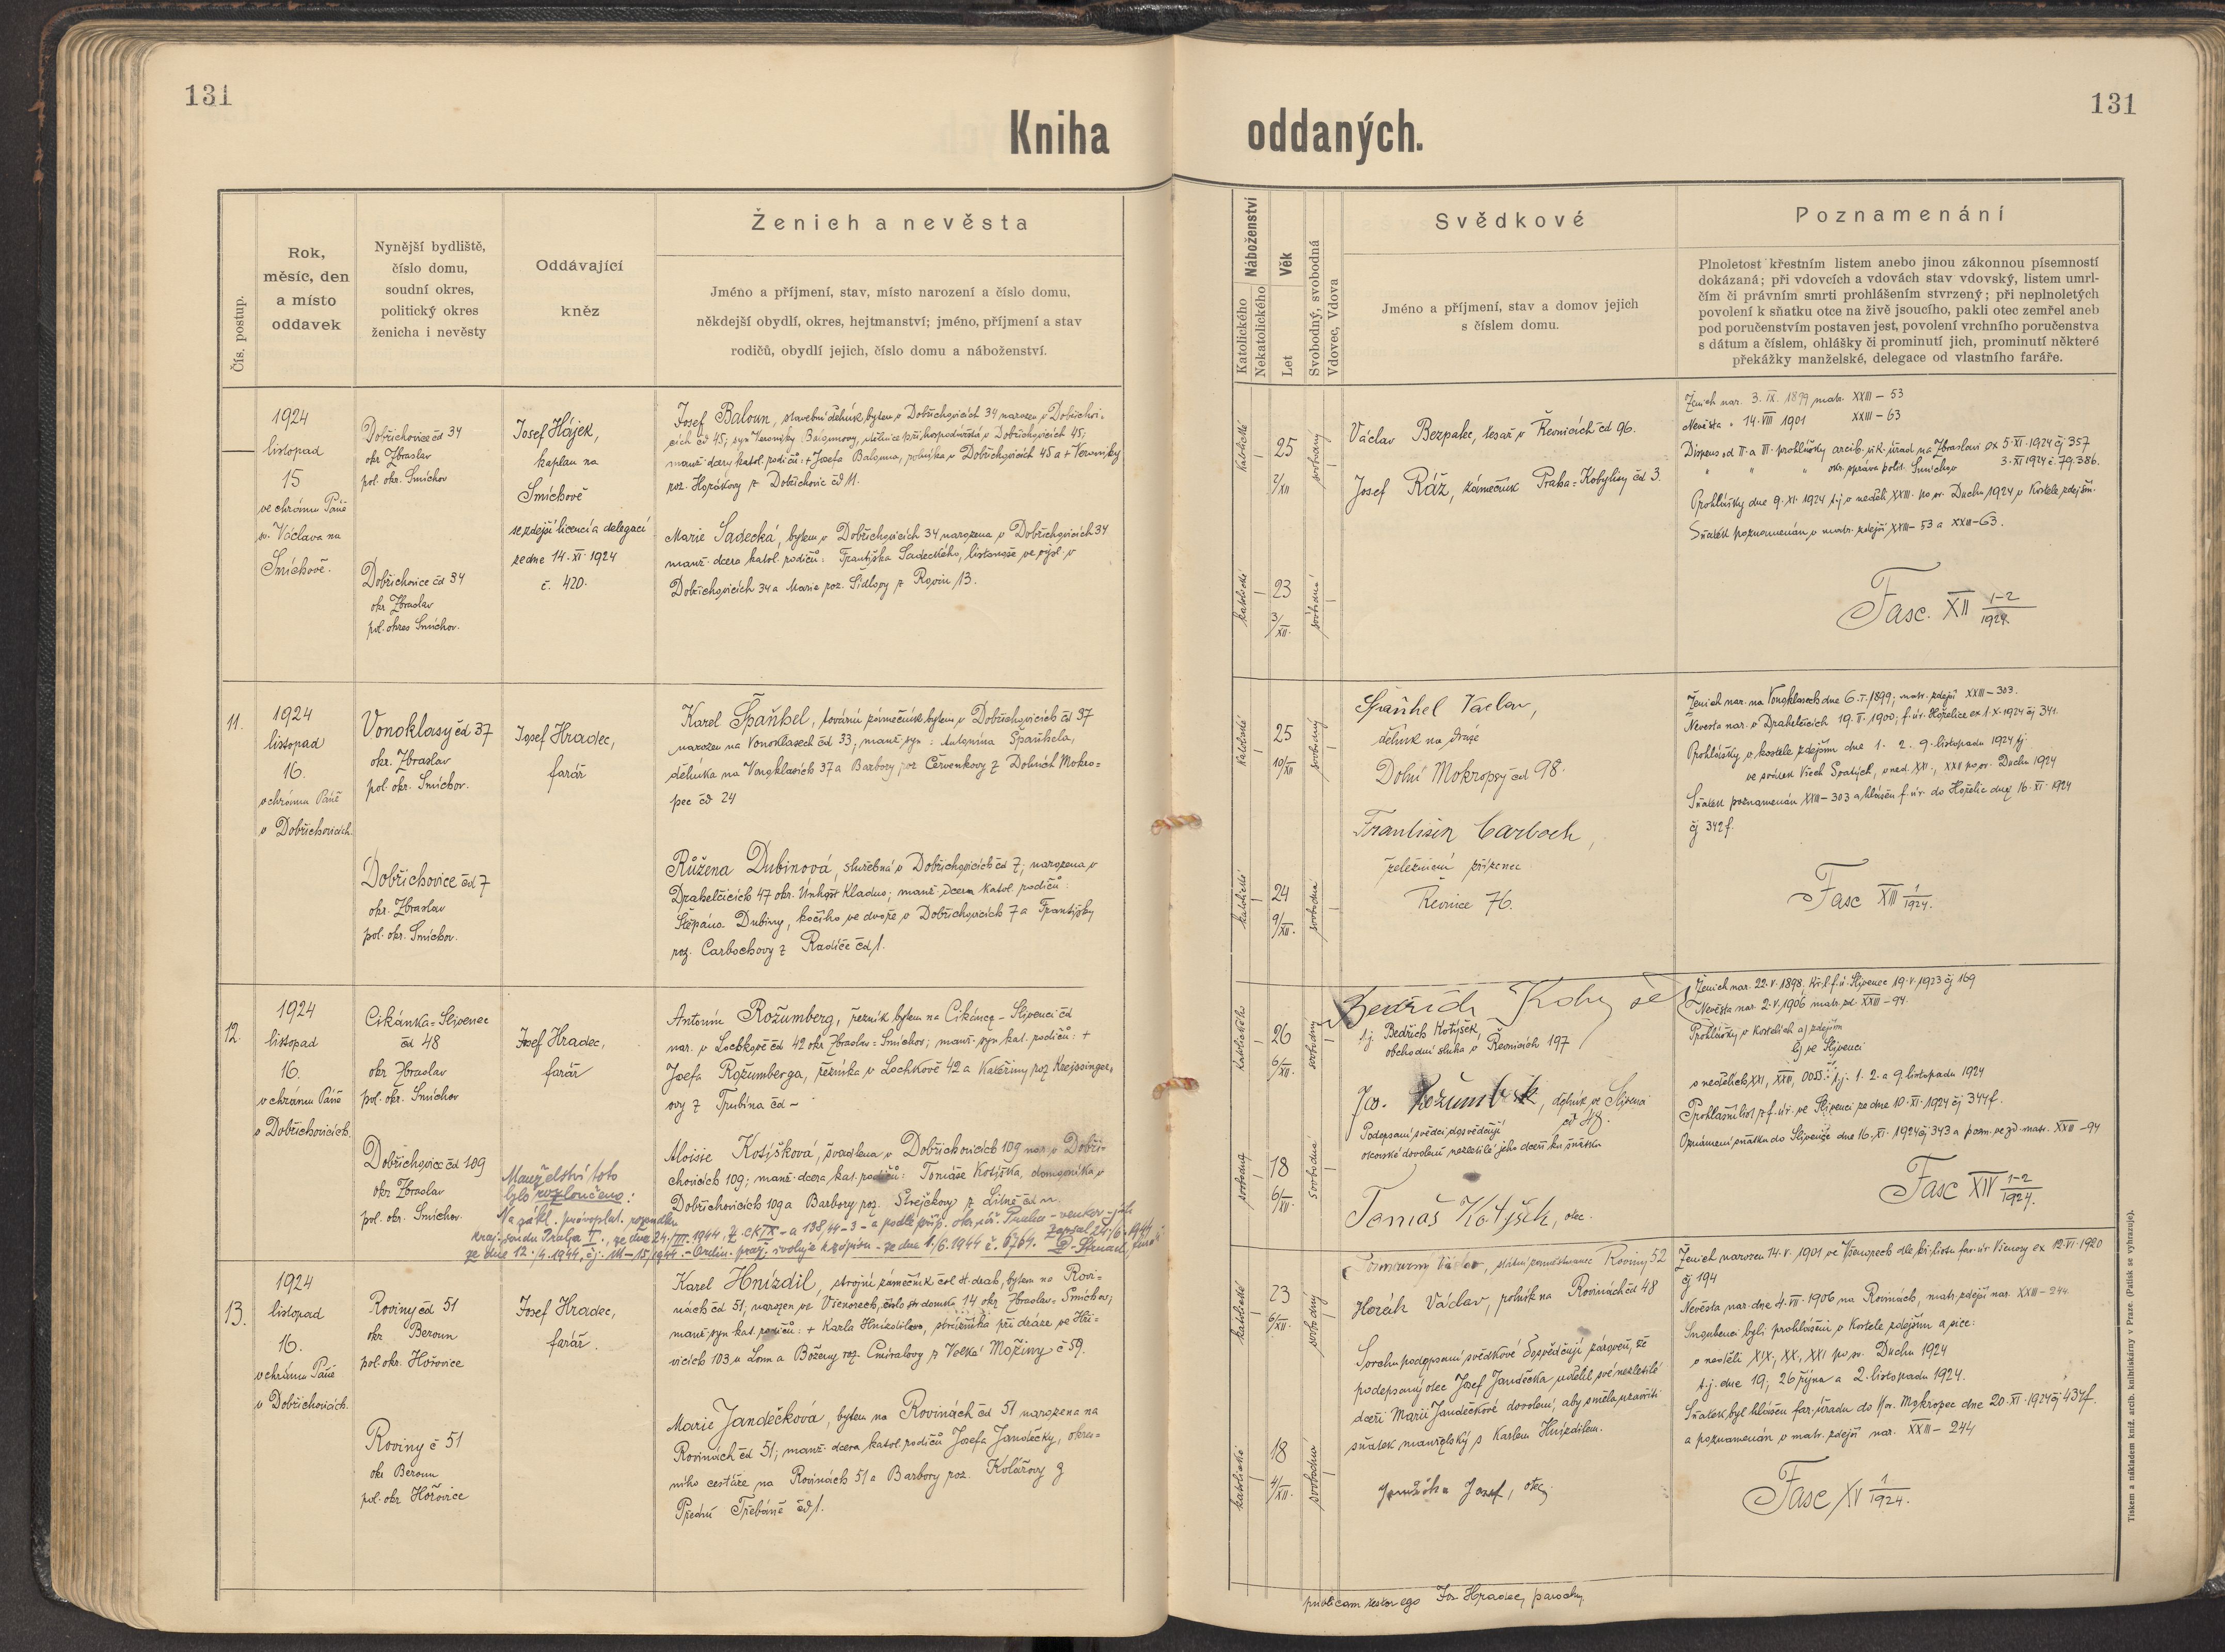 131
131
Kniha oddaných.
Čís. postup.
Rok,
měsíc, den
a místo
oddavek
Nynější bydliště,
číslo domu,
soudní okres,
politický okres
ženicha i nevěsty
Oddávající
kněz
Ženich a nevěsta
Jméno a příjmení, stav, místo narození a číslo domu,
někdejší obydlí, okres, hejtmanství; jméno, příjmení a stav
rodičů, obydlí jejich, číslo domu a náboženství.
Náboženství
Katolického
Nekatolického
Věk
Let
Svobodný, svobodná
Vdovec, Vdova
Svědkové
Jméno a příjmení, stav a domov jejich
s číslem domu.
Poznamenání
Plnoletost křestním listem anebo jinou zákonnou písemností
dokázaná; při vdovcích a vdovách stav vdovský, listem umrl-
čím či právním smrti prohlášením stvrzený; při neplnoletých
povolení k sňatku otce na živě jsoucího, pakli otec zemřel aneb
pod poručenstvím postaven jest, povolení vrchního poručenstva
s dátum a číslem, ohlášky či prominutí jich, prominutí některé
překážky manželské, delegace od vlastního faráře.
1924
listopad
15
ve chrámu Páně
sv. Václava na
Smíchově.
Dobřichovice čd 34
okr Zbraslav
pol. okr. Smíchov
Dobřichovice čd 34
okr Zbraslav
pol. okres Smíchov.
Josef Hájek,
kaplan na
Smíchově
se zdejší licencí a delegací
ze dne 14. XI. 1924
č. 420.
Josef Baloun, stavební dělník, bytem v Dobřichovicích 34 narozen v Dobřichovi-
cích čd 45; syn Veroniky Balounovy, v Dobřichovicích 45;
manž. dcery katol. rodičů: + Josefa Balouna, v Dobřichovicích 45 a + Veroniky
roz. Horákovy z Dobřichovic čd 11.
Marie Sadecká, bytem v Dobřichovicích 34 narozena v Dobřichovicích 34
manž. dcera katol. rodičů: Františka Sadeckého, listonoše ve výsl. v
Dobřichovicích 34 a Marie roz. Šídlovy z Rovin 13.
katolické
25
2/XII
svobodný
katolické
23
3/XII.
svobodná
Václav Bezpalec, tesař v Řevnicích čd 96.
Josef Ráž, zámečník Praha-Kobylisy čd 3.
Ženich nar. 3. IX. 1899 matr. XXIII – 53
Nevěsta " 14. VIII 1901 XXIII – 63
Dispens od II. a III. prohlášky arcib. vik. úřad na Zbraslavi ex 5. XI. 1924 čj 357
" " " okr. správa polit. Smíchov 3. XI 1924 č. 79.386.
Prohlášky dne 9. XI. 1924 t.j. v neděli XXII. po sv. Duchu 1924 v kostele zdejším.
Sňatek poznamenán v matr. zdejší XXIII – 53 a XXIII – 63.
Fasc. XII 1-2/1924.
11.
1924
listopad
16.
v chrámu Páně
v Dobřichovicích.
Vonoklasy čd 37
okr. Zbraslav
pol. okr. Smíchov.
Dobřichovice čd 7
okr. Zbraslav
pol. okr. Smíchov.
Josef Hradec,
farář
Karel Španhel, tovární zámečník bytem v Dobřichovicích čd 37
narozen na Vonoklasech čd 33, manž. syn: Antonína Španhela,
dělníka na Vonoklasích 37 a Barbory roz. Červenkovy z Dolních Mokro-
pec čd 24
Růžena Dubinová, služebná v Dobřichovicích čd 7; narozena v
Drahelčicích 47 okr. Unhošť Kladno; manž. dcera katol. rodičů:
Štěpána Dubiny, kočího ve dvoře v Dobřichovicích 7 a Františky
roz. Carbochovy z Radíče čd 1.
katolické
25
10/XII
svobodný
katolické
24
9/XII.
svobodná
Španhel Vaclav,
dělník na dráze
Dolní Mokropsy čd 98.
František Carboch,
železniční zřízenec
Řevnice 76.
Ženich nar. na Vonoklasech dne 6. I. 1899; matr. zdejší XXIII – 303.
Nevěsta nar. v Drahelčicích 19. II. 1900; f. úr. Hořelice ex 1. X. 1924 čj 341.
Prohlášky v kostele zdejším dne 1. 2. 9. listopadu 1924 tj
ve svátek Všech Svatých, v ned. XXI., XXII po sv. Duchu 1924
Sňatek poznamenán XXIII – 303 a hlášen f. úr. do Hořelic dne 16. XI. 1924
čj 342 f.
Fasc XIII 1/1924.
12.
1924
listopad
16.
v chrámu Páně
v Dobřichovicích.
Cikánka-Slivenec
čd 48
okr Zbraslav
pol. okr. Smíchov
Dobřichovice čd 109
okr Zbraslav
pol. okr. Smíchov.
Josef Hradec,
farář
Antonín Rožumberg, řezník bytem na Cikánce – Slivenci čd
nar. v Lochkově čd 42 okr Zbraslav-Smíchov; manž. syn kat. rodičů: +
Josefa Rožumberga, řezníka v Lochkově 42 a Kateřiny roz Kreissinger-
ovy z Trubína čd –
Aloisie Kotýšková, švadlena v Dobřichovicích 109 nar. v Dobři-
chovicích 109; manž. dcera kat. rodičů: Tomáše Kotýška, domovníka v
Dobřichovicích 109 a Barbory roz. Strejčkovy z Litně čd
Manželství toto
bylo rozloučeno:
Na zákl. právoplat. rozsudku
kraj. soudu Praha I., ze dne 24./III. 1944, č. CK IX – a 138/44-3 – a podle příp. okr. úř. Praha – venkov – jih
ze dne 12./4. 1944, čj. III – 15/1944. – Ordin. praž. svoluje k zápisu – ze dne 1./6. 1944 č. 6764. Zapsal 24/6. 1944
katolického
26
6/XII.
svobodný
18
6/XII.
svobodná
Bedřich
t.j. Bedřich Kotýšek,
obchodní sluha v Řevnicích 197
Jos. Rožumberk, dělník ve Slivenci
čd 48.
Podepsaní svědci dosvědčují
otcovské dovolení nezletilé jeho dceři ku sňatku
Tomáš Kotýšek, otec.
Ženich nar. 22. V. 1898. kř. l. f. ú. Slivenec 19. V. 1923 čj 169
Nevěsta nar. 2. V. 1906 matr. zd. XXIII – 94.
Prohlášky v kostelích a) zdejším
b) ve Slivenci
v nedělích XXI, XXII, t.j. 1. 2. a 9. listopadu 1924
Prohlašní list z f. úr. ve Slivenci ze dne 10. XI. 1924 čj 344 f.
Oznámení sňatku do Slivence dne 16. XI. 1924 čj 343 a pozn. ve zd. matr. XXIII – 94
Fasc XIV 1-2/1924.
13.
1924
listopad
16.
v chrámu Páně
v Dobřichovicích.
Roviny čd 51
okr Beroun
pol. okr. Hořovice
Roviny č 51
okr Beroun
pol. okr Hořovice
Josef Hradec,
farář.
Karel Hnízdil, strojní zámečník čsl st. drah, bytem na Rovi-
nách čd 51; narozen ve Všenorech, číslo str domku 14 okr Zbraslav-Smíchov;
manž syn kat. rodičů: + Karla Hnízdila, strážníka při dráze ve Hři-
vicích 103 u Loun a Boženy roz. Cmíralovy z Velké Mořiny č 59.
Marie Jandečková, bytem na Rovinách čd 51 narozena na
Rovinách čd 51; manž. dcera katol. rodičů Josefa Jandečky, okres-
ního cestáře na Rovinách 51 a Barbory roz. Kolářovy z
Přední Třebáně čd 1.
katolické
23
6/XII.
svobodný
katolické
18
4/XII.
svobodná
Václav, státní zaměstnanec Roviny 52
Horák Václav, rolník na Rovinách čd 48
Svrchu podepsaní svědkové dosvědčují zároveň, že
podepsaný otec Josef Jandečka udělil své nezletilé
dceři Marii Jandečkové dovolení, aby směla uzavříti
sňatek manželský s Karlem Hnízdilem.
Jandečka Josef, otec.
Ženich narozen 14. V. 1901 ve Všenorech dle kř. listu far. úr Všenory ex 12. VI. 1920
čj 194
Nevěsta nar. dne 4. VII. 1906 na Rovinách, matr. zdejší nar. XXIII – 244.
Snoubenci byli prohlášeni v kostele zdejším a sice:
v neděli XIX, XX, XXI po sv. Duchu 1924
t.j. dne 19; 26 října a 2. listopadu 1924.
Sňatek byl hlášen far. úřadu do Hor. Mokropec dne 20. XI. 1924 čj 437 f.
a poznamenán v matr. zdejší nar. XXIII – 244
Fasc XV 1/1924.
publicam testor ego Jos Hradec, parochus.
Tiskem a nákladem kníž. arcib. knihtiskárny v Praze. (Patisk se vyhrazuje).